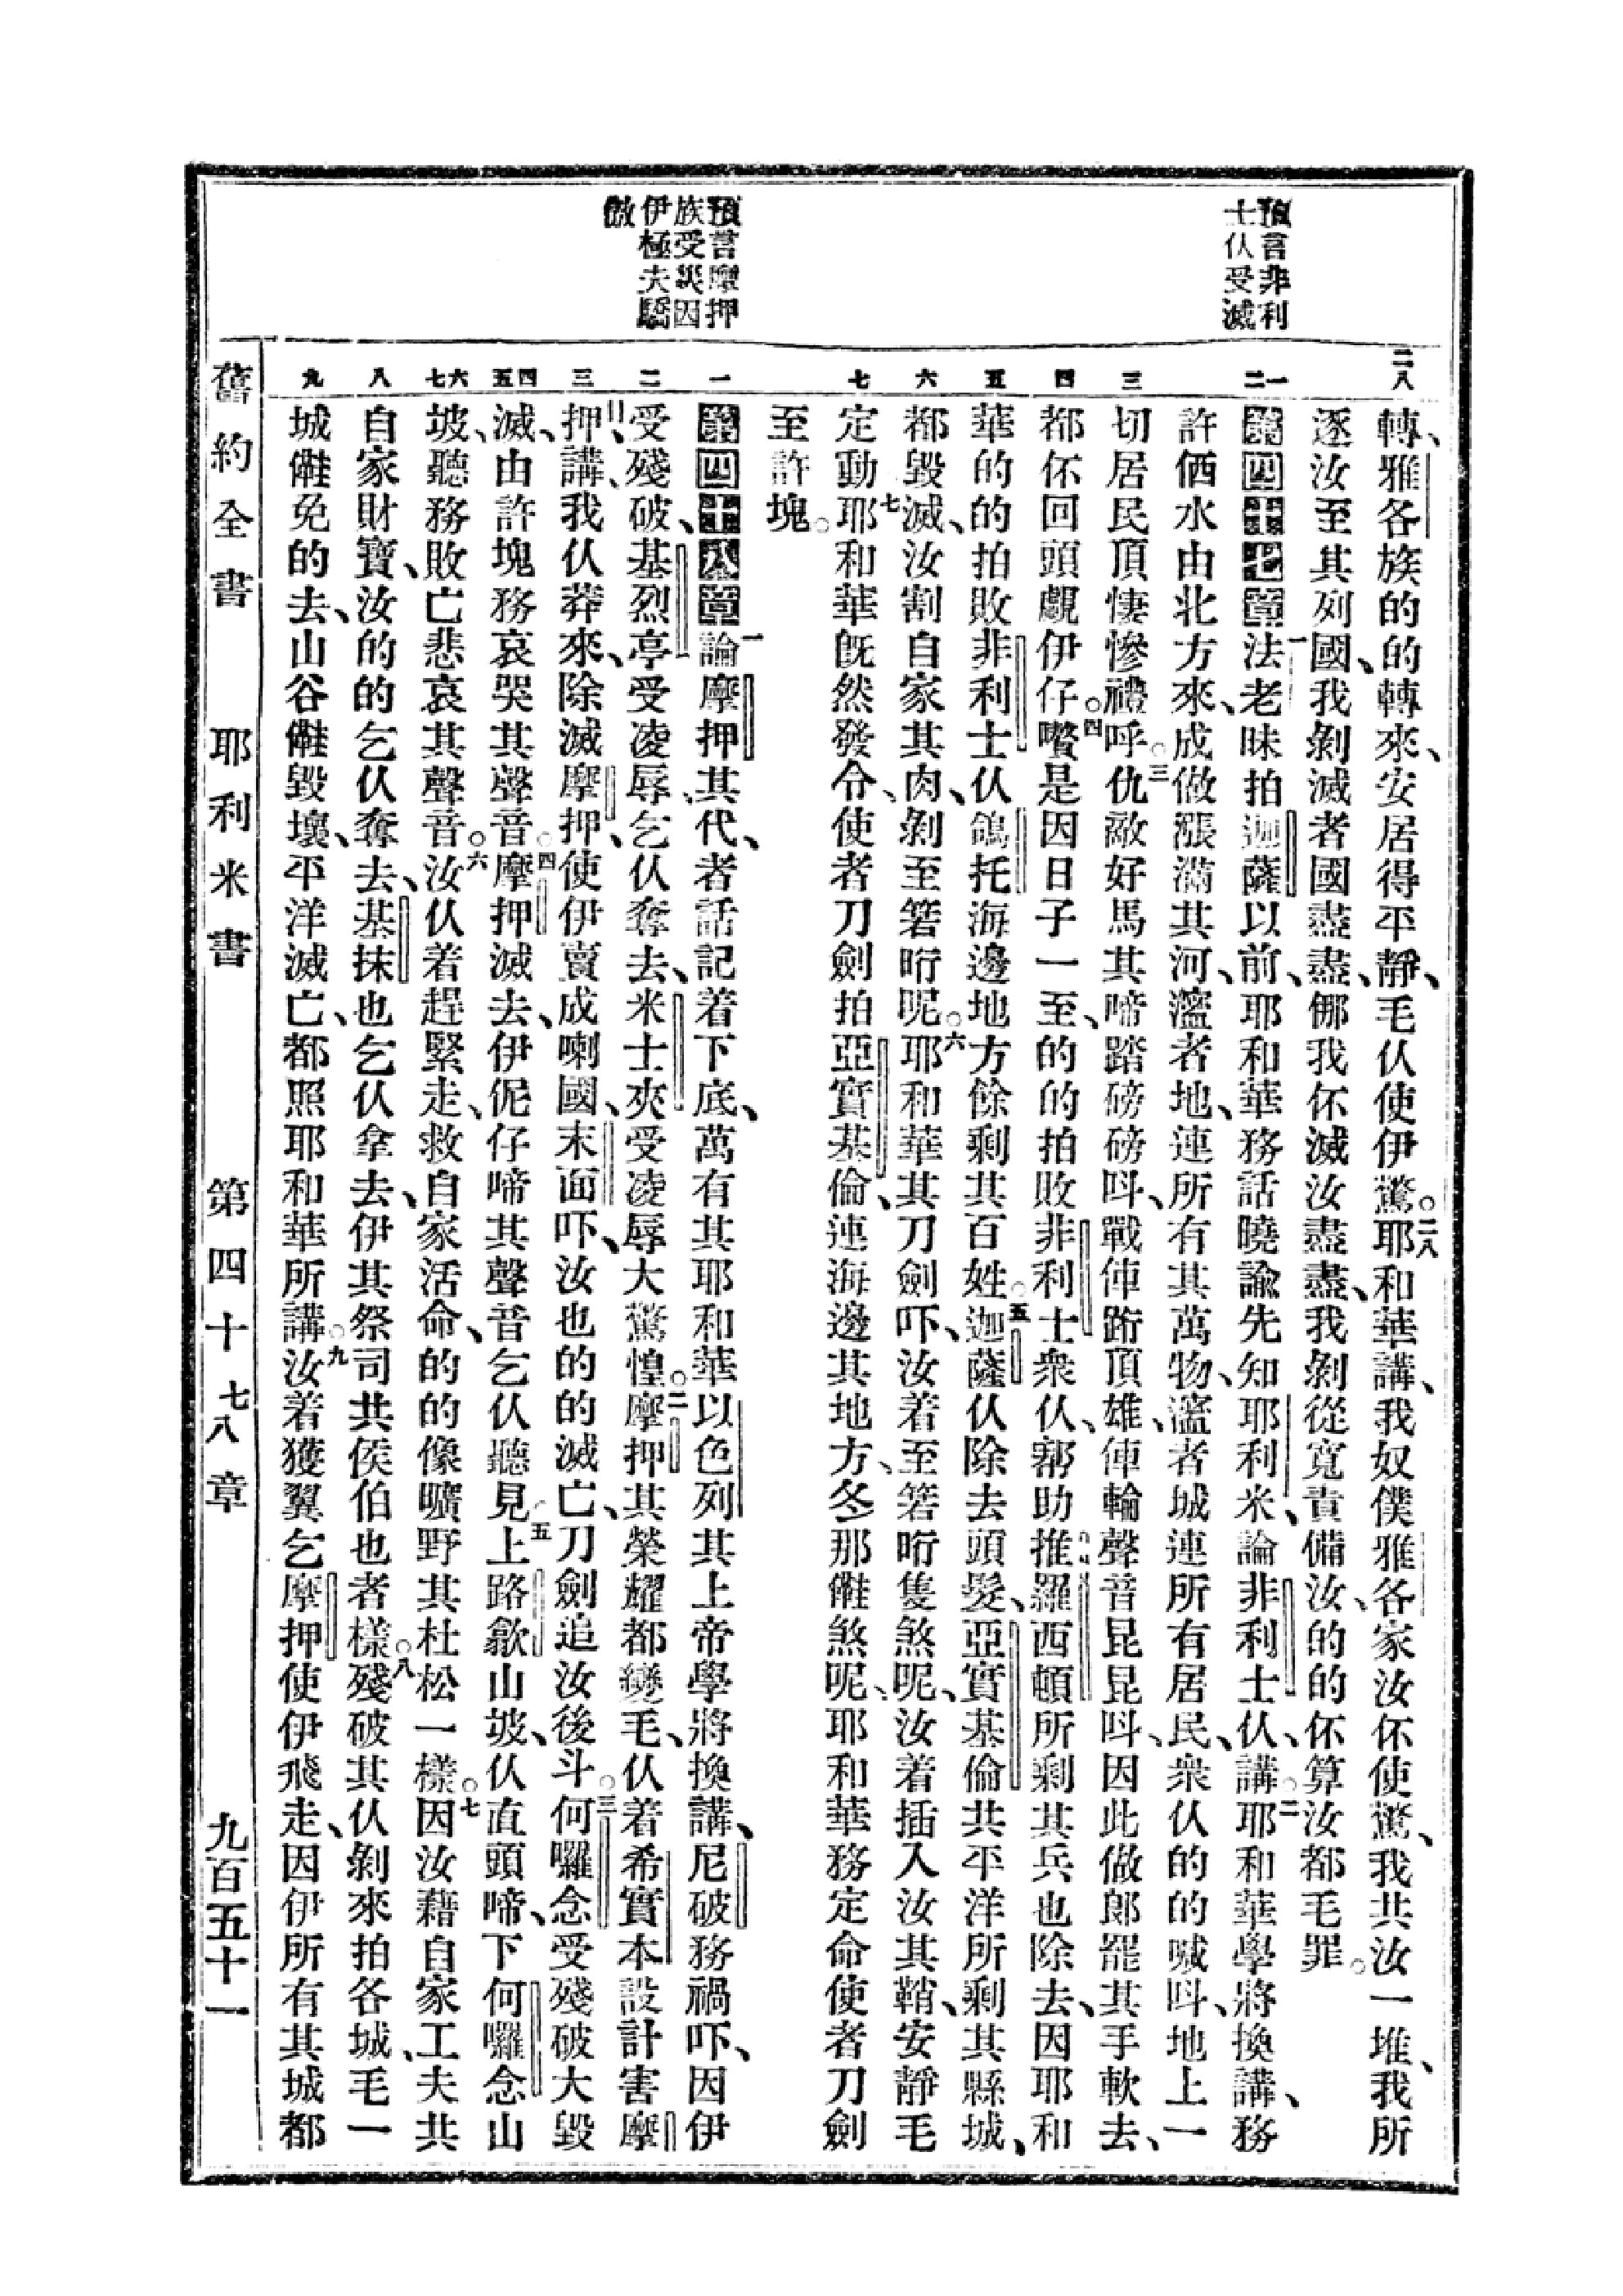 預言非利
士仏受滅
預言摩押
族受災因
伊極夫驕
傲
二八
轉、雅各族的的轉來、安居得平靜、毛仏使伊驚。二八耶和華講、我奴僕雅各家汝伓使驚、我共汝一堆、我所
逐汝至其列國、我剝滅者國盡盡、𠲥我伓滅汝盡盡、我剝從寬責備汝、的的伓算汝都毛罪。
一二
第四十七章一法老昧拍迦薩以前、耶和華務話曉諭先知耶利米、論非利士仏、講。二耶和華學將換講、務
許㕯水由北方來、成做漲滿其河、𤅢者地、連所有其萬物、𤅢者城連所有居民、衆仏的的喊呌、地上一
三
切居民頂悽慘禮呼。三仇敵好馬其啼踏磅磅呌、戰俥跑頂雄、俥輪聲音昆昆呌、因此做郎罷其手軟去、
四
都伓回頭覷伊仔。四嚽是因日子一至、的的拍敗非利士衆仏、幫助推羅西頓所剩其兵也除去、因耶和
五
華的的拍敗非利士仏、鴿托海邊地方餘剩其百姓。五迦薩仏除去頭髮、亞實基倫共平洋所剩其縣城、
六
都毀滅、汝割自家其肉、剝至箬暗呢。六耶和華其刀劍吓、汝着至箬暗隻煞呢、汝着插入汝其鞘、安靜毛
七
定動。七耶和華旣然發令、使者刀劍拍亞實基倫、連海邊其地方、冬那𣍐煞呢、耶和華務定命使者刀劍
至許塊。
一
第四十八章一論摩押其代、者話記着下底、萬有其耶和華以色列其上帝學將換講、尼破務禍吓、因伊
二
受殘破、基烈亭受凌辱、乞仏奪去、米士夾受凌辱大驚惶。二摩押其榮耀都變毛、仏着希實本設計害摩
三
押、講、我仏莽來、除滅摩押、使伊賣成喇國、末面吓、汝也的的滅亡、刀劍追汝後斗。三何囉念受殘破大毀
四五
滅、由許塊務哀哭其聲音。四摩押滅去、伊伲仔啼其聲音乞仏聽見。五上路歙山坡、仏直頭啼、下何囉念山
六七
坡、聽務敗亡悲哀其聲音。六汝仏着趕緊走、救自家活命、的的像曠野其杜松一樣。七因汝藉自家工夫共
八
自家財寶、汝的的乞仏奪去、基抹也乞仏拿去、伊其祭司共侯伯也者樣。八殘破其仏剝來拍各城、毛一
九
城𣍐免的去、山谷𣍐毀壞、平洋滅亡、都照耶和華所講。九汝着獲翼乞摩押使伊飛走、因伊所有其城都
舊約全書 耶利米書 第四十七八章 九百五十一